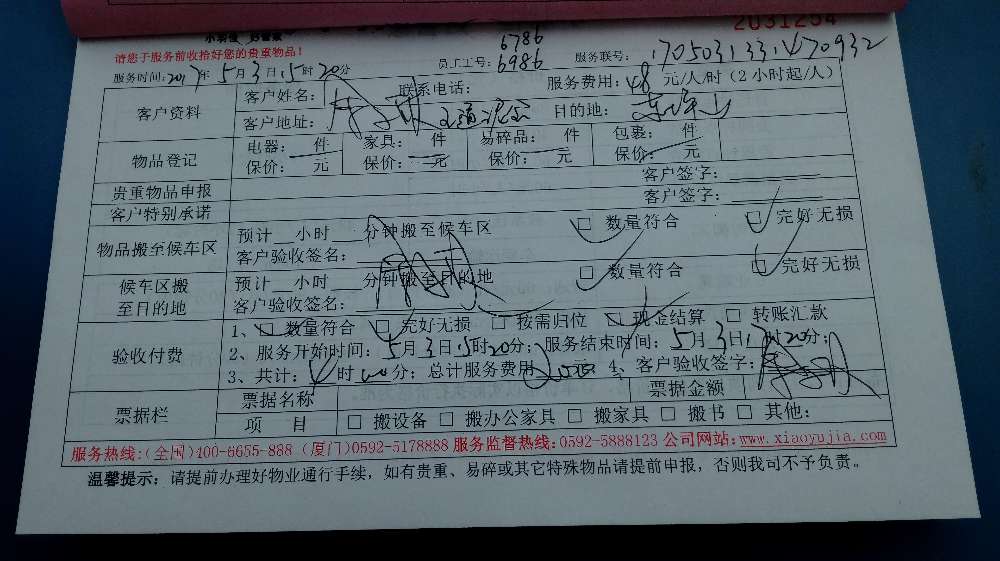 2031254
请您于服务前收拾好您的贵重物品!
6786
员工工号: 6986 服务联号: 1705031331470932
服务时间: 2017年5月3日15时20分 联系电话: 服务费用: 48元/人/时 (2小时起/人)
客户资料 客户姓名:
客户地址: 目的地:
物品登记 电器: 件 家具: 件 易碎品: 件 包裹: 件
保价: 元 保价: 元 保价: 元 保价: 元
贵重物品申报 客户签字:
客户特别承诺 客户签字:
物品搬至候车区 预计__小时___分钟搬至候车区 □ 数量符合 □ 完好无损
客户验收签名:
候车区搬至目的地 预计__小时___分钟搬至目的地 □ 数量符合 □ 完好无损
客户验收签名:
验收付费 1、□ 数量符合 □ 完好无损 □ 按需归位 □ 现金结算 □ 转账汇款
2、服务开始时间: 5月3日15时20分; 服务结束时间: 5月3日17时20分;
3、共计: 时 分; 总计服务费用 元 4、客户验收签字:
票据栏 票据名称 票据金额
项 目 □ 搬设备 □ 搬办公家具 □ 搬家具 □ 搬书 □ 其他:
服务热线:(全国)400-6655-888 (厦门)0592-5178888 服务监督热线:0592-5888123 公司网站:www.xiaoyujia.com
温馨提示: 请提前办理好物业通行手续, 如有贵重、易碎或其它特殊物品请提前申报, 否则我司不予负责。